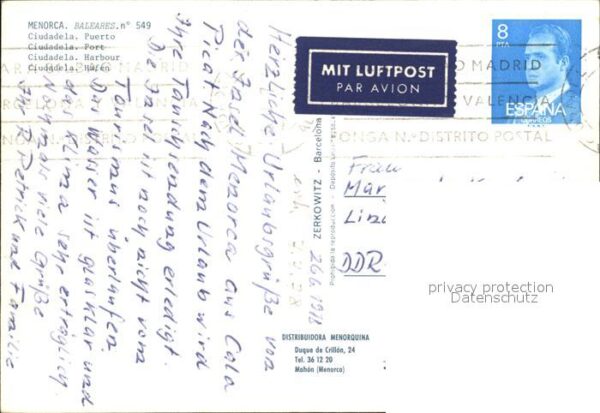 MENORCA. BALEARES. n° 549
Ciudadela. Puerto
Ciudadela. Port
Ciudadela. Harbour
Ciudadela. Hafen
MIT LUFTPOST
PAR AVION
8
PTA
ESPAÑA
CORREOS
MADRID
VALENCIA
PONGA N.º DISTRITO POSTAL
Herzliche Urlaubsgrüße von
der Insel Menorca aus Cala
Pica. Nach dem Urlaub wird
Ihre Tauschsendung erledigt.
Die Insel ist noch nicht vom
Tourismus überlaufen
Das Wasser ist glasklar und
das Klima sehr erträglich.
Nochmals viele Grüße
Ihr R. Petrick und Familie
26.6.1978
ZERKOWITZ - Barcelona
Prohibida la reproducción - Depósito
Frau
DDR
DISTRIBUIDORA MENORQUINA
Duque de Crillón, 24
Tel. 36 12 20
Mahón (Menorca)
privacy protection
Datenschutz